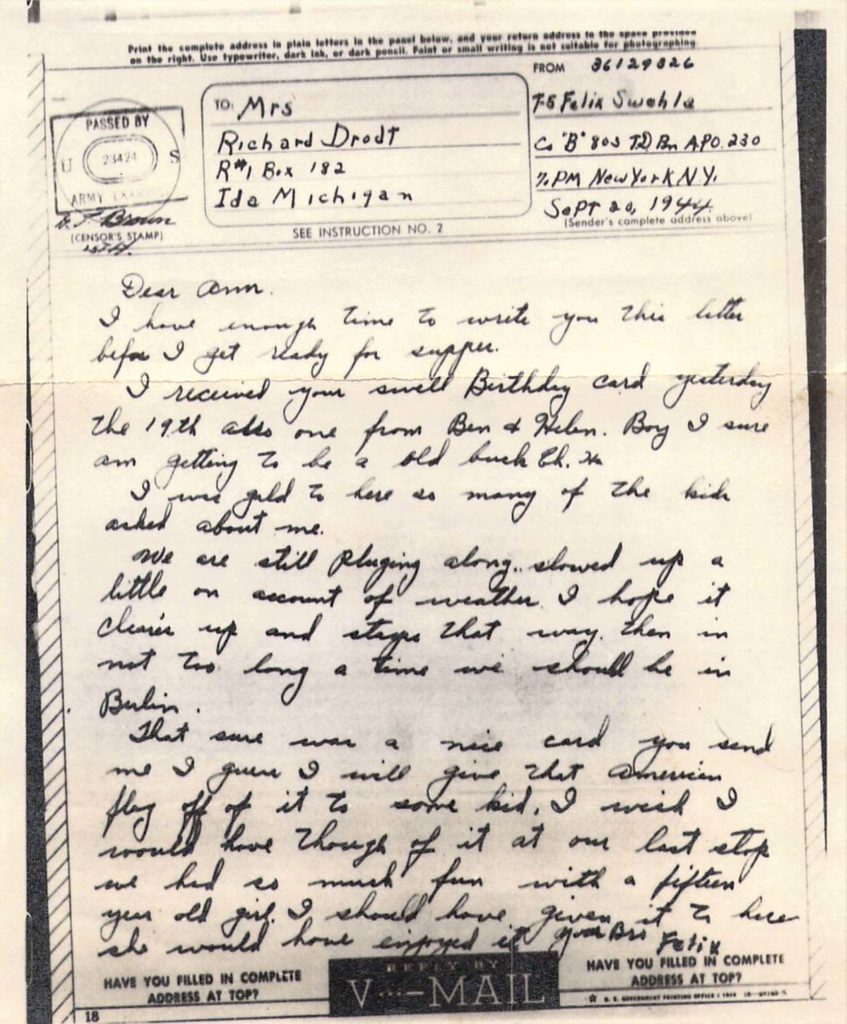 Print the complete address in plain letters in the panel below, and your return address in the space provided
on the right. Use typewriter, dark ink, or dark pencil. Faint or small writing is not suitable for photographing
FROM 36129326
TO: Mrs
Richard Drodt
R#1 Box 182
Ida Michigan
T-5 Felix Swehla
Co "B" 803 TD Bn APO. 230
% PM New York N.Y.
Sept 20, 1944
(Sender's complete address above)
PASSED BY
U S
23424
ARMY EXAMINER
Brown
(CENSOR'S STAMP)
SEE INSTRUCTION NO. 2
Dear Ann.
I have enough time to write you this letter
befor I get ready for supper.
I received your swell Birthday card yesterday
the 19th also one from Ben & Helen. Boy I sure
am getting to be a old buck Eh. Ha
I was gald to here so many of the kids
asked about me.
We are still pluging along. slowed up a
little on account of weather. I hope it
clears up and stays that way. then in
not too long a time we should be in
Berlin.
That sure was a nice card you send
me I guess I will give that American
flag off of it to some kid. I wish I
would have though of it at our last stop
we had so much fun with a fifteen
year old girl. I should have given it to here
she would have enjoyed it Your Bro
Felix
HAVE YOU FILLED IN COMPLETE
ADDRESS AT TOP?
REPLY BY
V···—MAIL
HAVE YOU FILLED IN COMPLETE
ADDRESS AT TOP?
U. S. GOVERNMENT PRINTING OFFICE
18